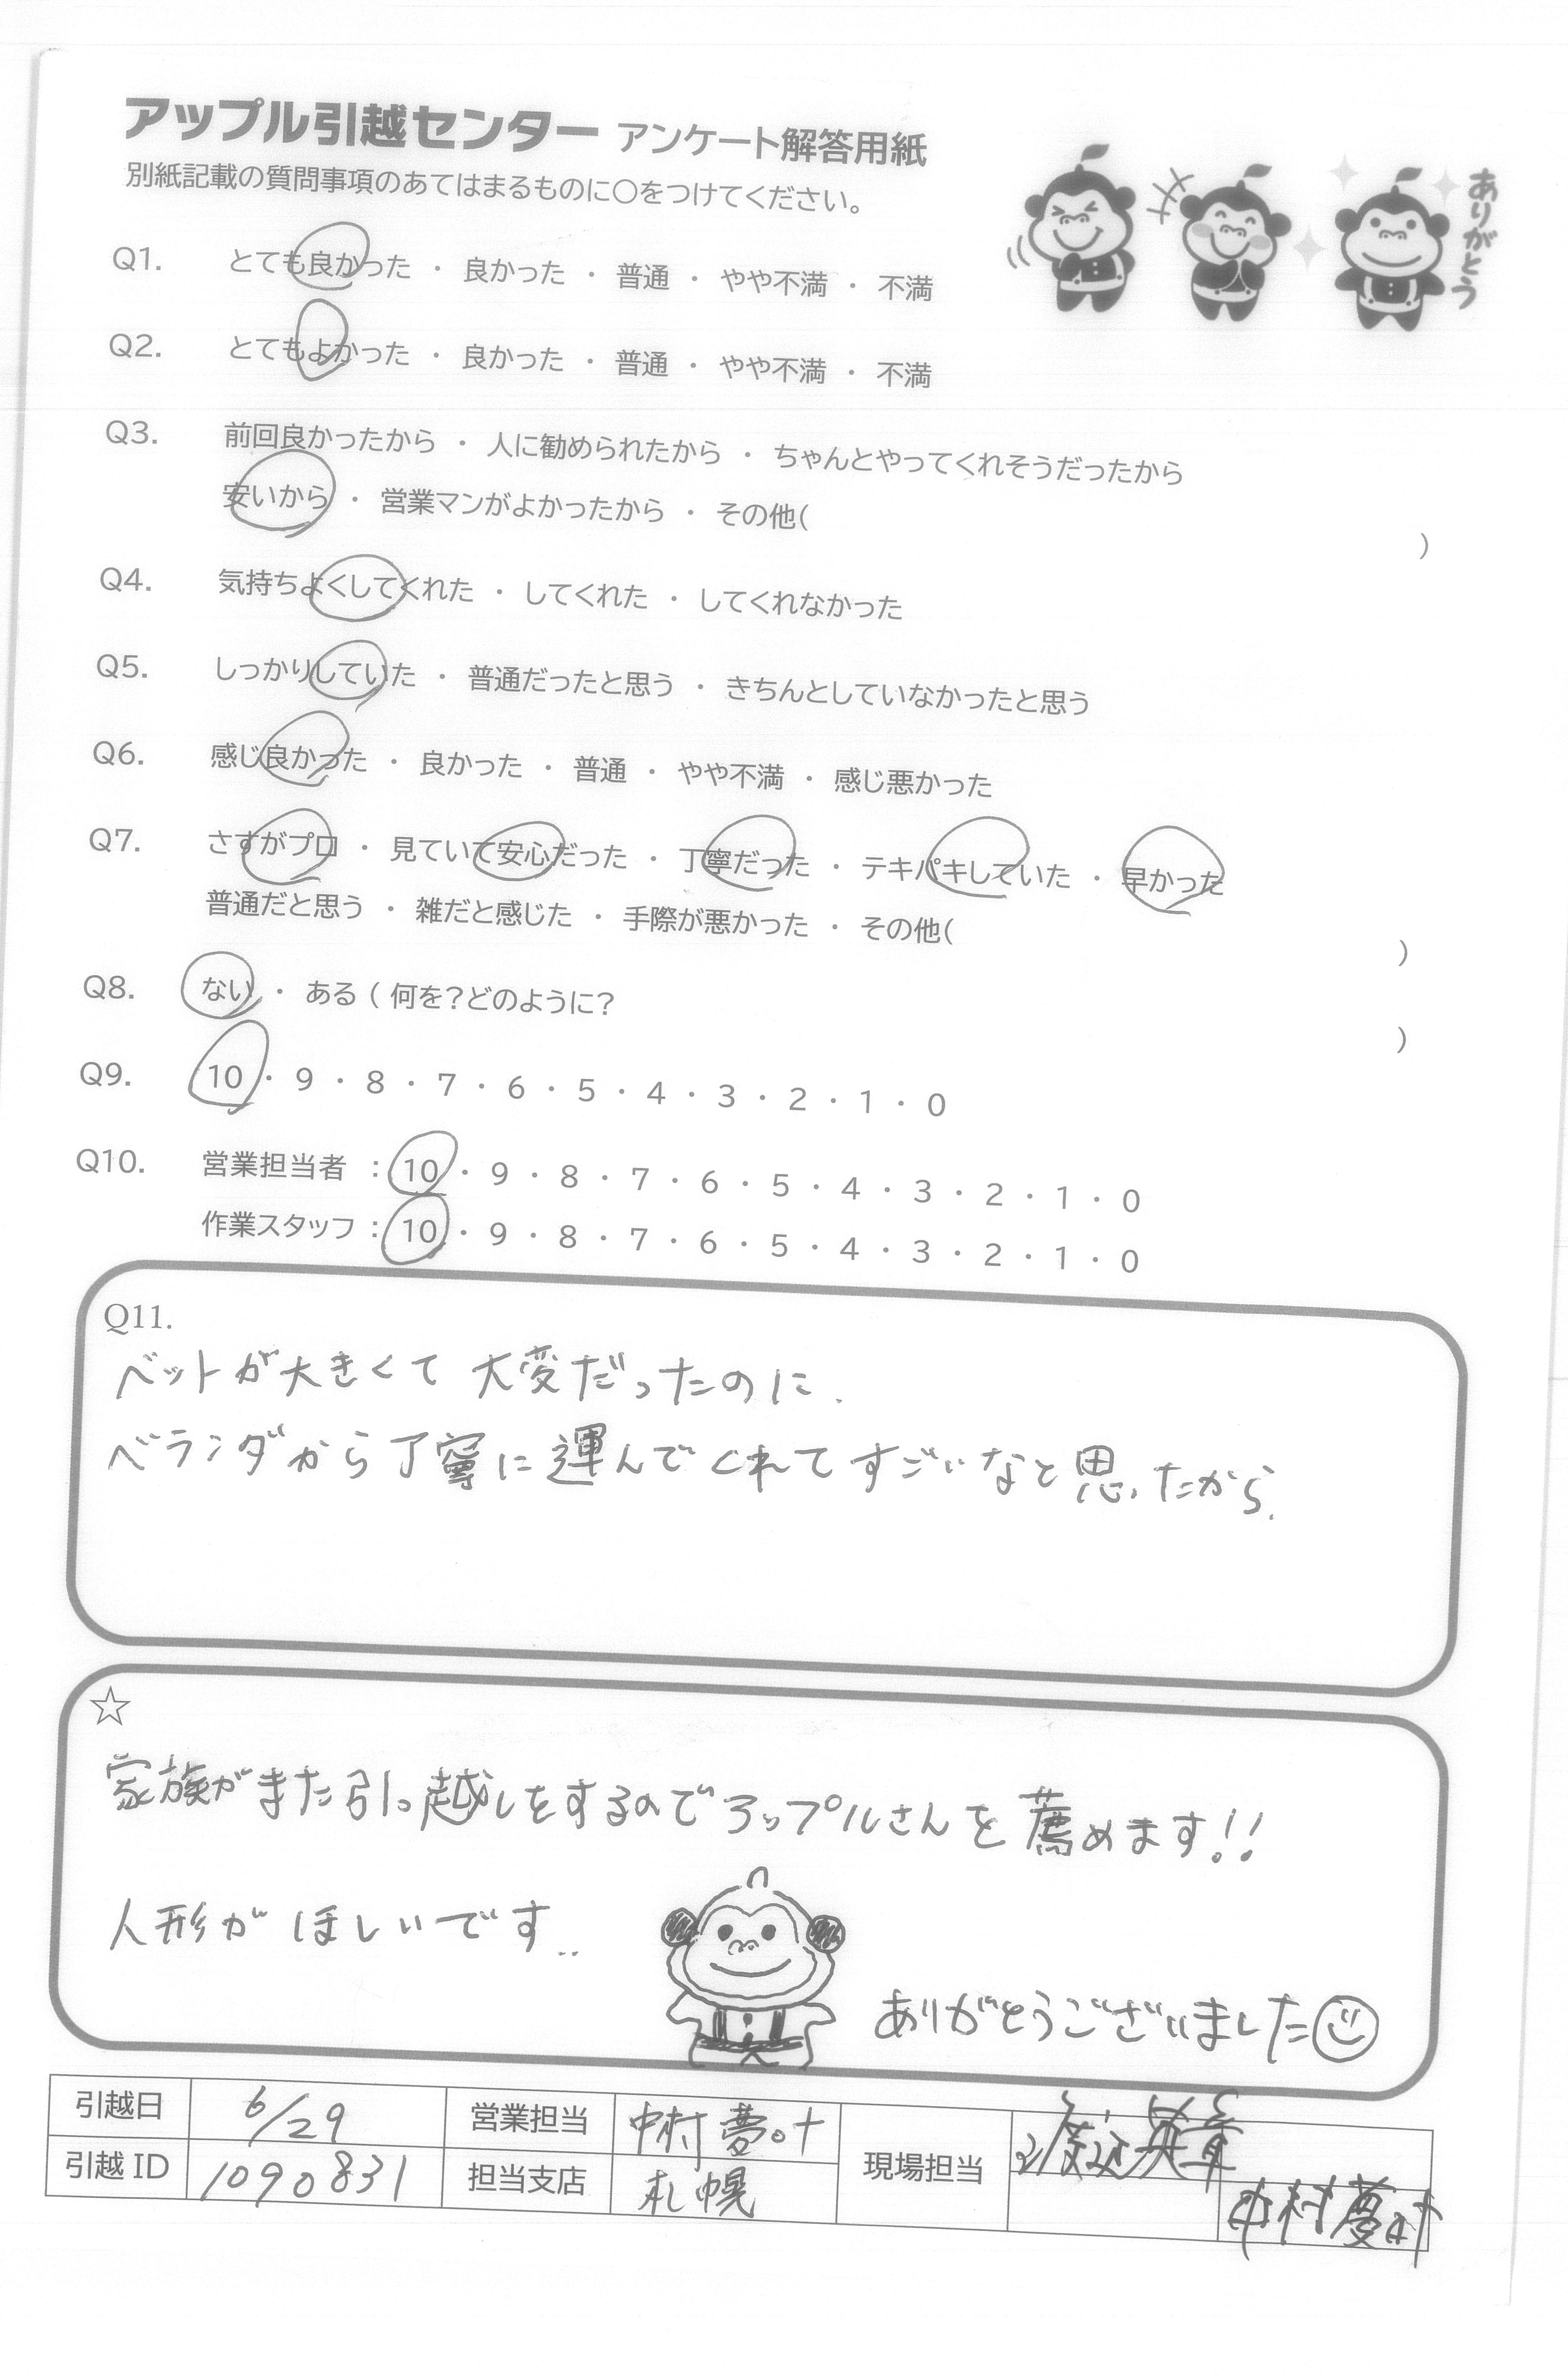 アップル引越センター アンケート解答用紙
別紙記載の質問事項のあてはまるものに〇をつけてください。
ありがとう
Q1. とても良かった ・ 良かった ・ 普通 ・ やや不満 ・ 不満
Q2. とてもよかった ・ 良かった ・ 普通 ・ やや不満 ・ 不満
Q3. 前回良かったから ・ 人に勧められたから ・ ちゃんとやってくれそうだったから
安いから ・ 営業マンがよかったから ・ その他( )
Q4. 気持ちよくしてくれた ・ してくれた ・ してくれなかった
Q5. しっかりしていた ・ 普通だったと思う ・ きちんとしていなかったと思う
Q6. 感じ良かった ・ 良かった ・ 普通 ・ やや不満 ・ 感じ悪かった
Q7. さすがプロ ・ 見ていて安心だった ・ 丁寧だった ・ テキパキしていた ・ 早かった
普通だと思う ・ 雑だと感じた ・ 手際が悪かった ・ その他( )
Q8. ない ・ ある ( 何を?どのように? )
Q9. 10 ・ 9 ・ 8 ・ 7 ・ 6 ・ 5 ・ 4 ・ 3 ・ 2 ・ 1 ・ 0
Q10. 営業担当者 : 10 ・ 9 ・ 8 ・ 7 ・ 6 ・ 5 ・ 4 ・ 3 ・ 2 ・ 1 ・ 0
作業スタッフ : 10 ・ 9 ・ 8 ・ 7 ・ 6 ・ 5 ・ 4 ・ 3 ・ 2 ・ 1 ・ 0
Q11.
ベットが大きくて 大変だったのに.
ベランダから丁寧に運んでくれてすごいなと思ったから.
☆
家族がまた引っ越しをするのでアップルさんを薦めます!!
人形がほしいです..
ありがとうございました
引越日 6/29 営業担当 中村 夢叶 現場担当 渡辺英章
引越 ID 1090831 担当支店 札幌 中村夢叶